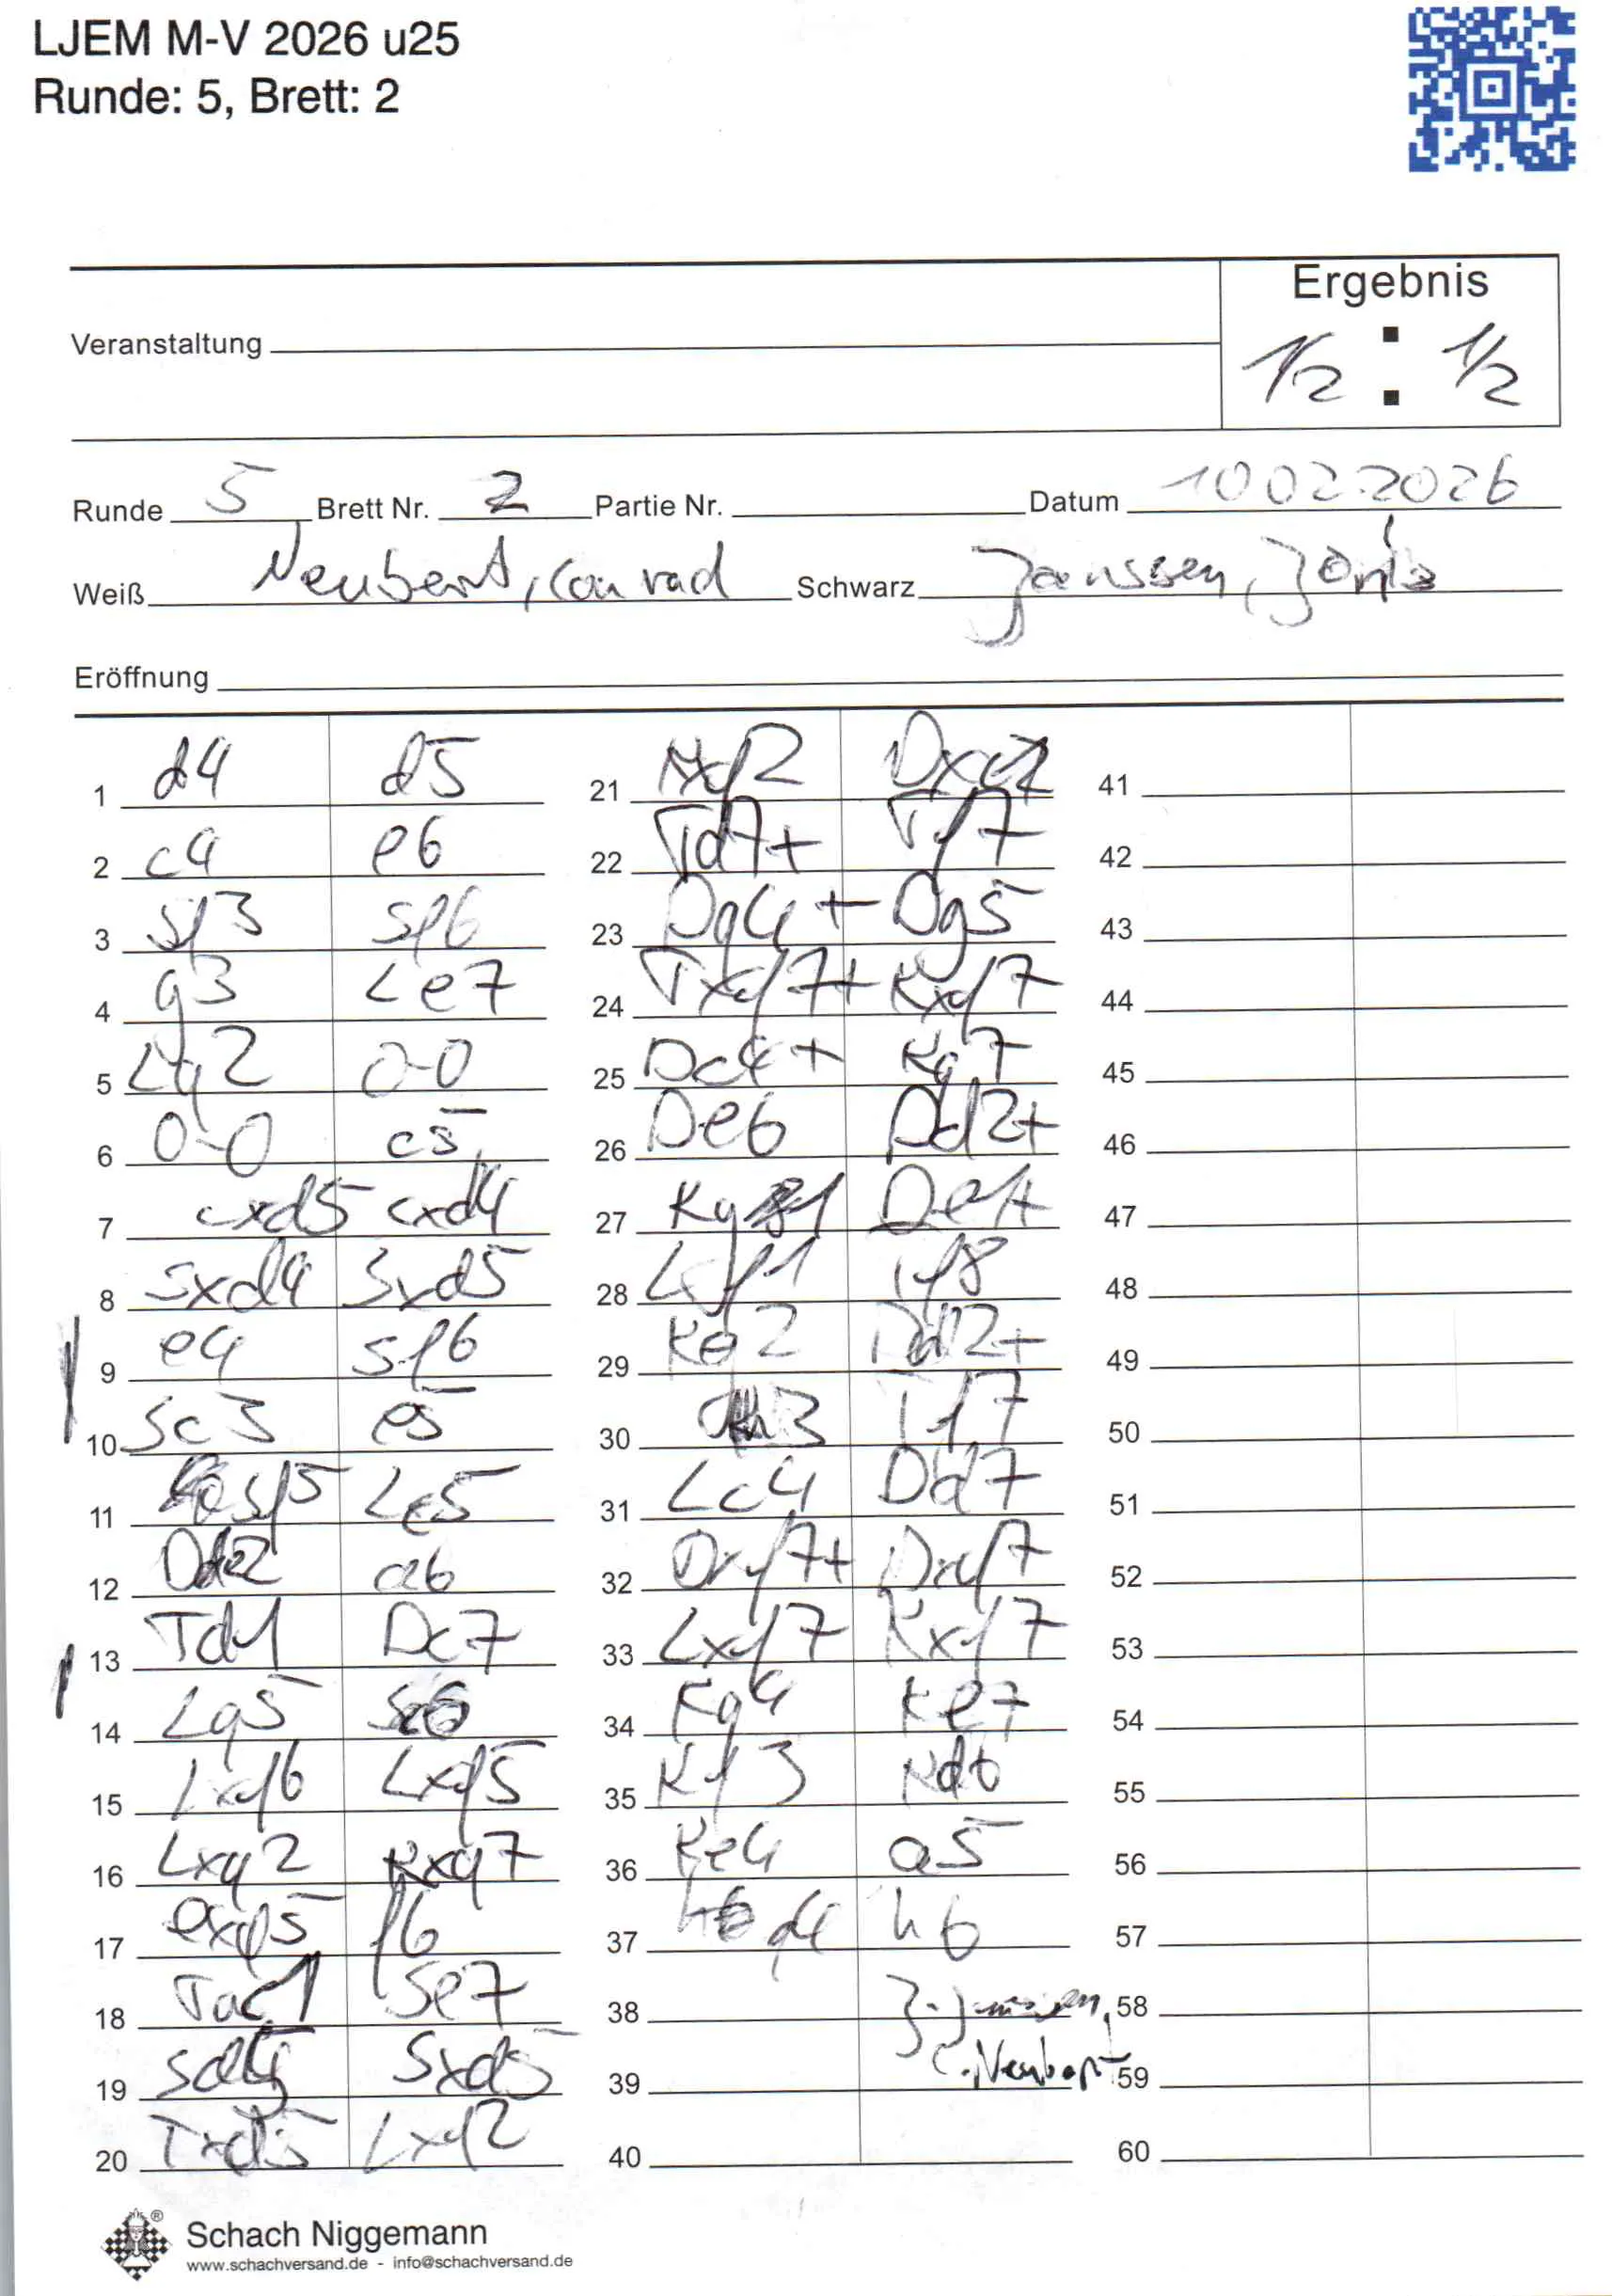 LJEM M-V 2026 u25
Runde: 5, Brett: 2
Ergebnis
Veranstaltung
1/2 : 1/2
Runde 5 Brett Nr. 2 Partie Nr. Datum 10 02 2026
Weiß Neubert, Conrad Schwarz Janssen, Joris
Eröffnung
1 d4 d5
2 c4 e6
3 Sf3 Sf6
4 g3 Le7
5 Lg2 0-0
6 0-0 c5
7 cxd5 cxd4
8 Sxd4 Sxd5
9 e4 Sf6
10 Sc3 e5
11 Sf5 Lc5
12 De2 a6
13 Td1 Dc7
14 Lg5 Sc6
15 Lxf6 Lxf5
16 Lxg7 Kxg7
17 exf5 f6
18 Tac1 Se7
19 Sd5 Sxd5
20 Txd5 Lxf2
21 Kxf2 Dxc1
22 Td7+ Tf7
23 Dg4+ Dg5
24 Txf7+ Kxf7
25 Dc4+ Kg7
26 De6 Dd2+
27 Kg1 De1+
28 Lf1 Tf8
29 Kg2 Dd2+
30 Kh3 Tf7
31 Lc4 Dd7
32 Dxf7+ Dxf7
33 Lxf7 Kxf7
34 Kg4 Ke7
35 Kf3 Kd6
36 Ke4 a5
37 g4 h6
38 J. Janssen
39 C. Neubert
40
41
42
43
44
45
46
47
48
49
50
51
52
53
54
55
56
57
58
59
60
Schach Niggemann
www.schachversand.de - info@schachversand.de